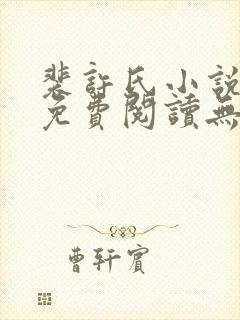 裴許氏小說
免費閱讀無
曹軒賓